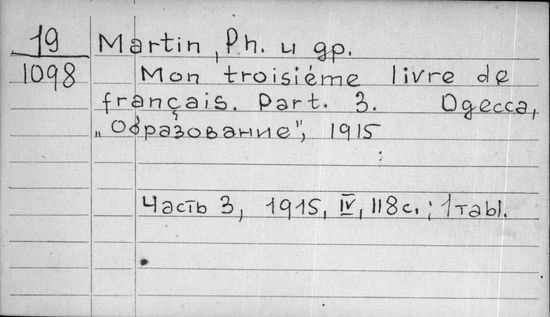 19
1098
Martin, Ph. и др.
Mon troisiéme livre de
français. Part. 3. Одесса,
„Образование", 1915
Часть 3, 1915, IV, 118с.; 1 tabl.